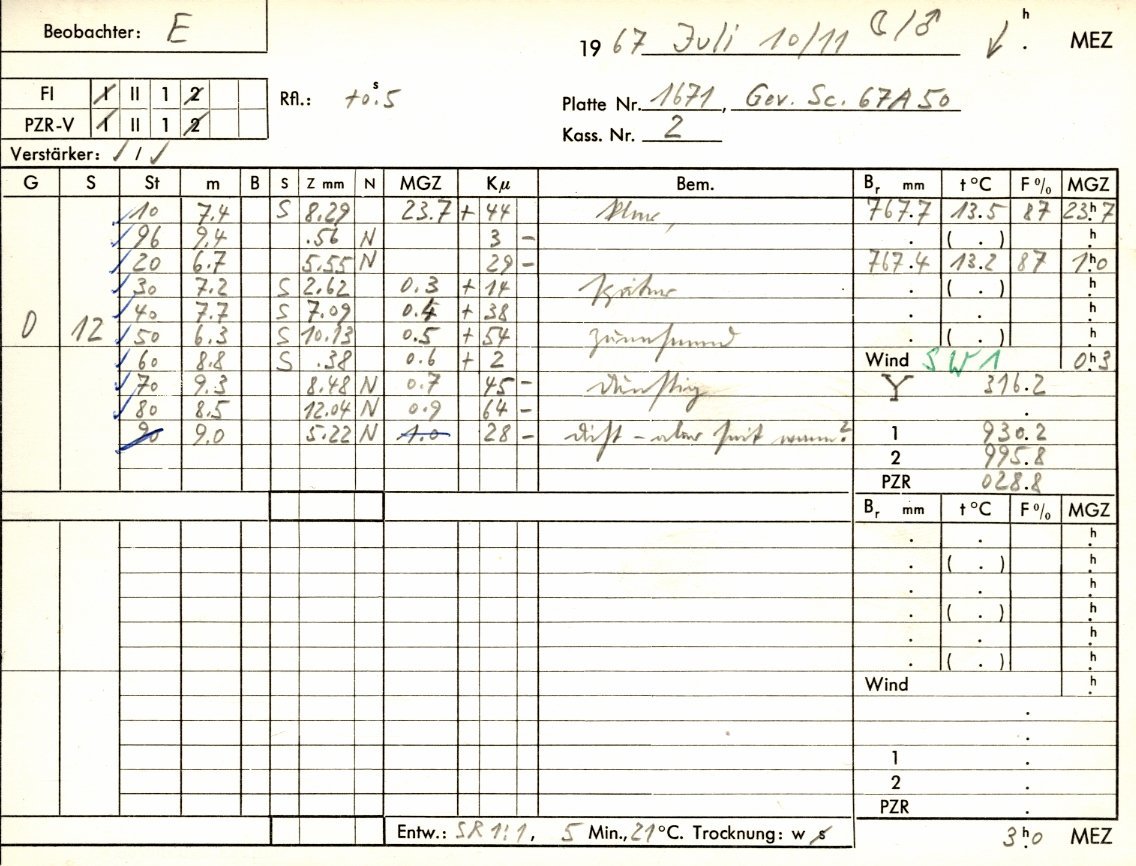 Beobachter: E
19 67 Juli 10/11 ☾/♂ h . MEZ
FI I II 1 2
Rfl.: +0.s5
Platte Nr. 1671, Gev. Sc. 67A50
PZR-V I II 1 2
Kass. Nr. 2
Verstärker: √ / √
G S St m B S Z mm N MGZ Kμ Bem. Br mm t °C F % MGZ
10 7.4 S 8.29 23.7 + 44 767.7 13.5 87 23.h7
96 9.4 .56 N 3 - . ( . ) .h
20 6.7 5.55 N 29 - 767.4 13.2 87 1.h0
30 7.2 S 2.62 0.3 + 14 später . ( . ) .h
40 7.7 S 7.09 0.4 + 38 . . .h
0 12 50 6.3 S 10.13 0.5 + 54 zunehmend . ( . ) .h
60 8.8 S .38 0.6 + 2 Wind SW1 0.h3
70 9.3 8.48 N 0.7 45 - dunstig Y 316.2
80 8.5 12.04 N 0.9 64 - .
90 9.0 5.22 N 1.0 28 - dicht - aber seit wann? 1 930.2
2 995.8
PZR 028.8
Br mm t °C F % MGZ
. . .h
. ( . ) .h
. . .h
. ( . ) .h
. . .h
. ( . ) .h
Wind .h
.
.
1 .
2 .
PZR .
Entw.: SR 1:1, 5 Min., 21 °C. Trocknung: w s 3.h0 MEZ